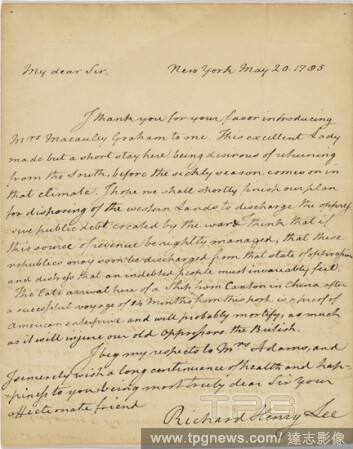 My dear Sir, New York May 20. 1785
I thank you for your favor introducing
Mrs Macauley Graham to me. This excellent Lady
made but a short stay here being desirous of returning
from the South, before the sickly season comes on in
that climate. I hope we shall shortly finish our plan
for disposing of the western Lands to discharge the oppres
sive public debt created by the war & I think that if
this source of revenue be rightly managed, that these
republics may soon be discharged from that state of oppression
and distress that an indebted people must invariably feel.
The late arrival here of a Ship from Canton in China after
a successful voyage of 14 months from this port, is a proof of
American enterprise and will probably mortify, as much
as it will injure our old Oppressors the British.
I beg my respects to Mrs Adams, and
sincerely wish a long continuance of health and hap-
piness to you being most truly dear Sir Your
affectionate friend
Richard Henry Lee
TPG
www.tpgnews.com/達志影像